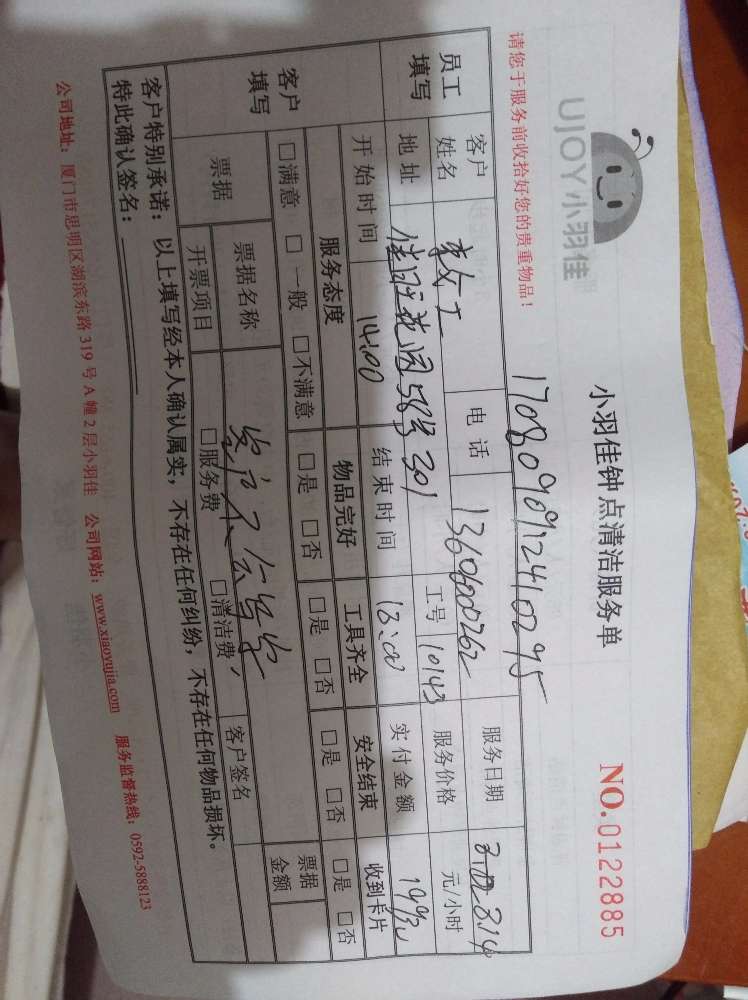 UJOY小羽佳
小羽佳钟点清洁服务单
NO.0122885
请您于服务前收拾好您的贵重物品！
1708090912410295
员工填写
客户姓名
李女士
电话
13606000262
服务日期
地址
佳旺花园58号301
工号
10143
服务价格
元/小时
开始时间
14:00
结束时间
18:00
实付金额
客户填写
服务态度
物品完好
工具齐全
安全结束
收到卡片
□满意 □一般 □不满意
□是 □否
□是 □否
□是 □否
□是 □否
票据
票据名称
客户签名
票据金额
开票项目
□服务费
□清洁费
客户特别承诺：以上填写经本人确认属实，不存在任何纠纷，不存在任何物品损坏。
特此确认签名：
公司地址：厦门市思明区湖滨东路319号A幢2层小羽佳 公司网站：www.xiaoyujia.com 服务监督热线：0592-5888123